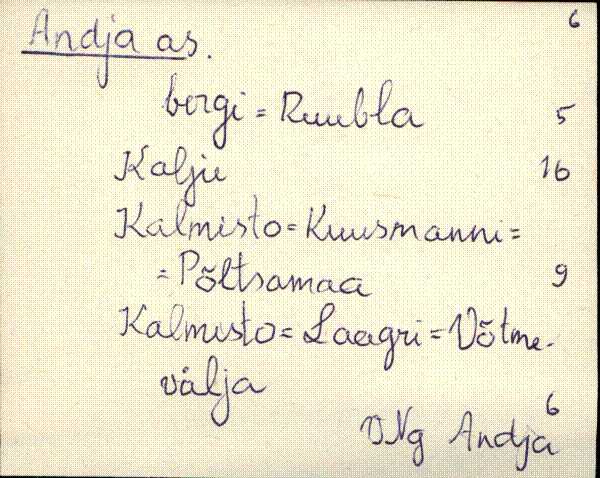 Andja as. 6
bergi = Ruubla 5
Kalju 16
Kalmisto = Kuusmanni =
= Põltsamaa 9
Kalmisto = Laagri = Võtme-
välja 6
VNg Andja